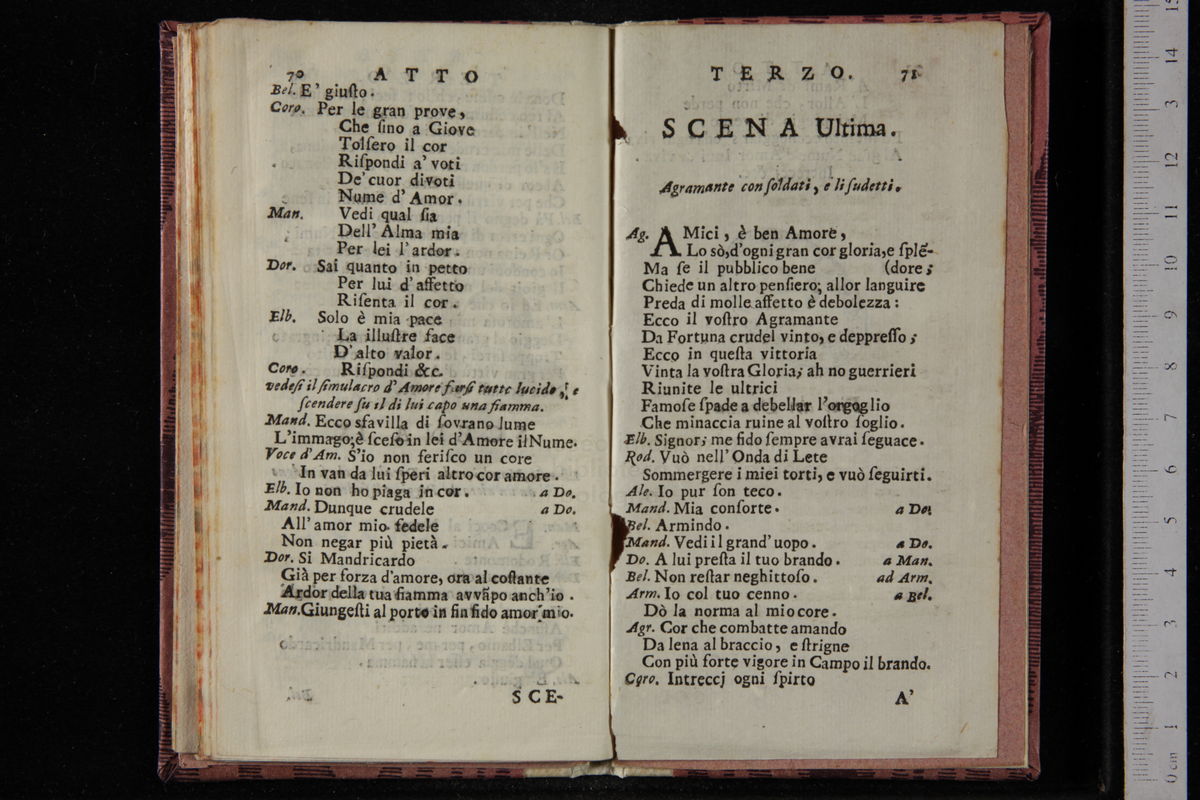 70 ATTO
Bel. E' giuſto.
Coro. Per le gran prove,
Che ſino a Giove
Tolſero il cor
Riſpondi a' voti
De' cuor divoti
Nume d' Amor.
Man. Vedi qual ſia
Dell' Alma mia
Per lei l'ardor.
Dor. Sai quanto in petto
Per lui d'affetto
Riſenta il cor.
Elb. Solo è mia pace
La illuſtre face
D'alto valor.
Coro. Riſpondi &c.
vedeſi il ſimulacro d'Amore farſi tutto lucido, e
ſcendere ſu il di lui capo una fiamma.
Mand. Ecco sfavilla di ſovrano lume
L'immago; è ſceſo in lei d'Amore il Nume.
Voce d'Am. S'io non feriſco un core
In van da lui ſperi altro cor amore.
Elb. Io non ho piaga in cor. a Do.
Mand. Dunque crudele a Do.
All' amor mio fedele
Non negar più pietà.
Dor. Si Mandricardo
Già per forza d'amore, ora al coſtante
Ardor della tua fiamma avvãpo anch'io.
Man. Giungeſti al porto in fin fido amor mio.
SCE-
TERZO. 71
SCENA Ultima.
Agramante con ſoldati, e li ſudetti.
Ag. AMici, è ben Amore,
Lo sò, d'ogni gran cor gloria, e ſplẽ-
Ma ſe il pubblico bene (dore;
Chiede un altro penſiero; allor languire
Preda di molle affetto è debolezza:
Ecco il voſtro Agramante
Da Fortuna crudel vinto, e deppreſſo;
Ecco in queſta vittoria
Vinta la voſtra Gloria; ah no guerrieri
Riunite le ultrici
Famoſe ſpade a debellar l'orgoglio
Che minaccia ruine al voſtro ſoglio.
Elb. Signor; me fido ſempre avrai ſeguace.
Rod. Vuò nell' Onda di Lete
Sommergere i miei torti, e vuò ſeguirti.
Ale. Io pur ſon teco.
Mand. Mia conſorte. a Do.
Bel. Armindo.
Mand. Vedi il grand' uopo. a Do.
Do. A lui preſta il tuo brando. a Man.
Bel. Non reſtar neghittoſo. ad Arm.
Arm. Io col tuo cenno. a Bel.
Dò la norma al mio core.
Agr. Cor che combatte amando
Da lena al braccio, e ſtrigne
Con più forte vigore in Campo il brando.
Coro. Intreccj ogni ſpirto
A'